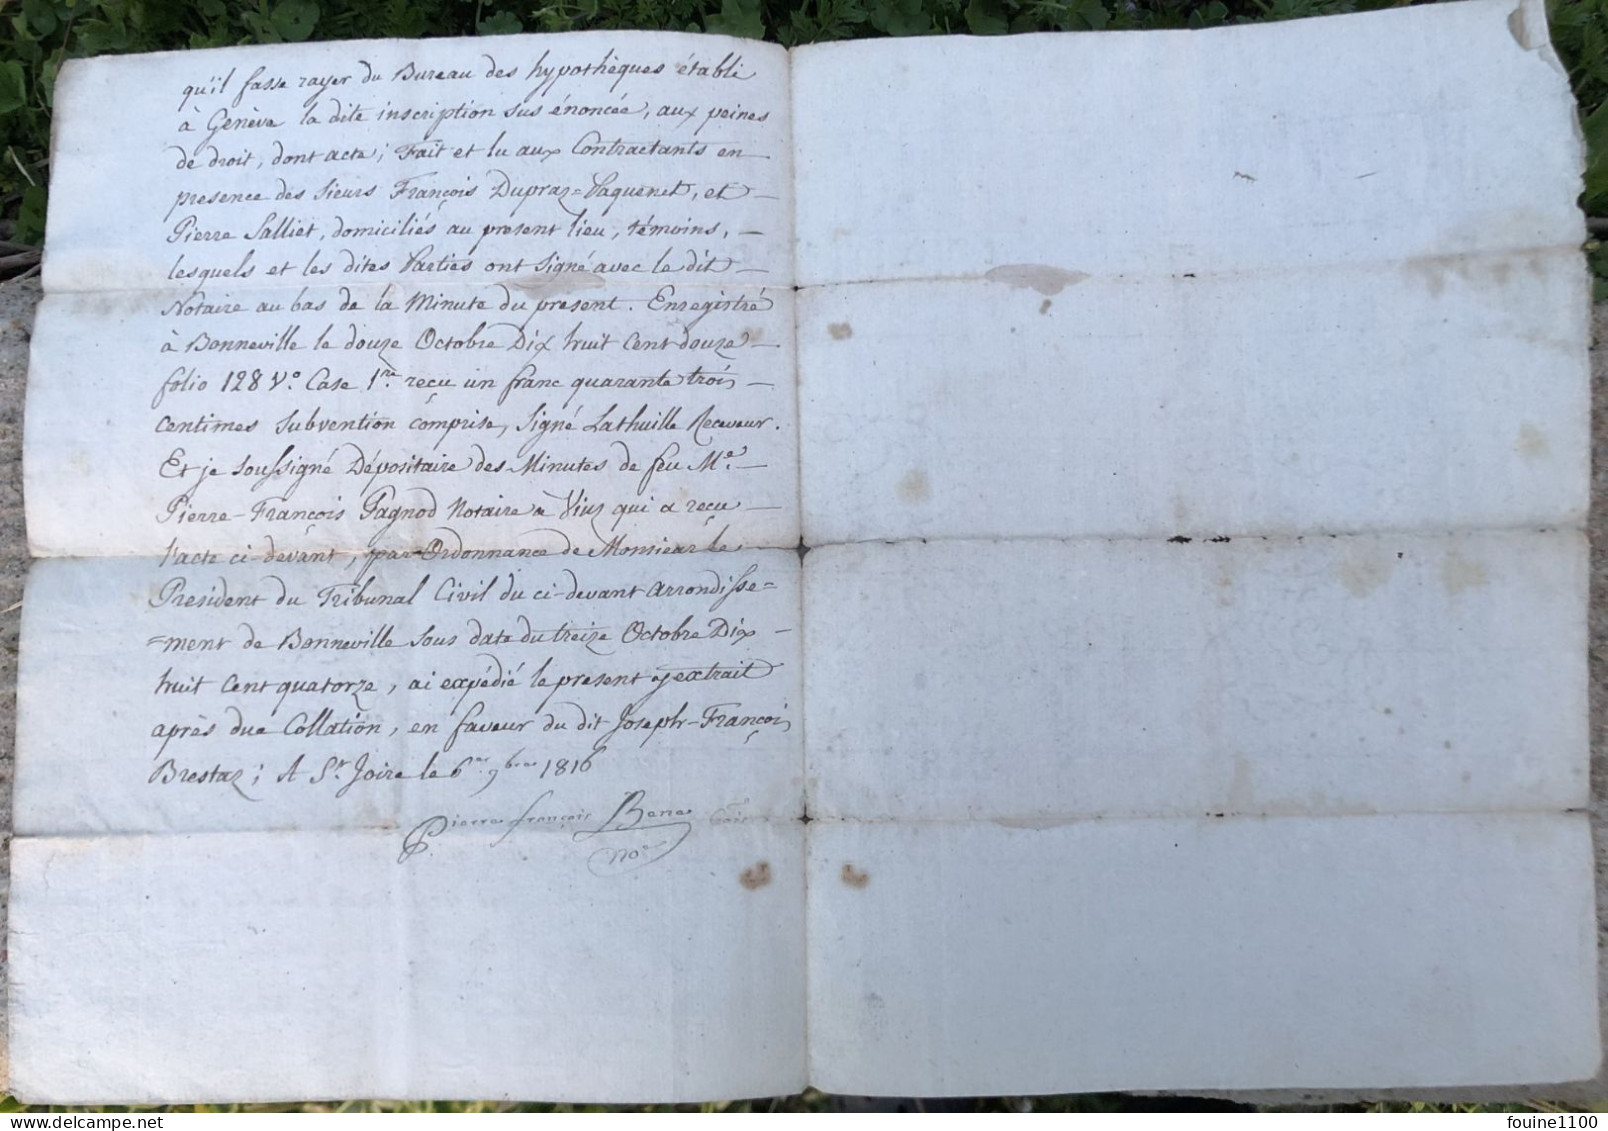 qu'il fasse rayer du Bureau des hypothèques établi
à Genève la dite inscription sus énoncée, aux peines
de droit, dont acte; Fait et lu aux Contractants en
presence des Sieurs François Dupraz=Vaquenet, et
Pierre Salliet, domiciliés au present lieu, témoins,
lesquels et les dites Parties ont Signé avec le dit
Notaire au bas de la Minute du présent. Enregistré
à Bonneville le douze Octobre Dix huit Cent douze
folio 128 Vo. Case 1re. reçu un franc quarante trois
Centimes Subvention comprise, Signé Lathuille Receveur.
Et je Soussigné Dépositaire des Minutes de feu Me.
Pierre-François Pagnod Notaire à Viuz qui a reçu
l'acte ci-devant, par Ordonnance de Monsieur le
President du Tribunal Civil du ci-devant Arrondisse=
=ment de Bonneville Sous date du treize Octobre Dix
huit Cent quatorze, ai expédié le present extrait
après due Collation, en faveur du dit Joseph-François
Brestaz; A St. Joire le 6 9bre 1816
Pierre françois Bene
nore
fouine1100